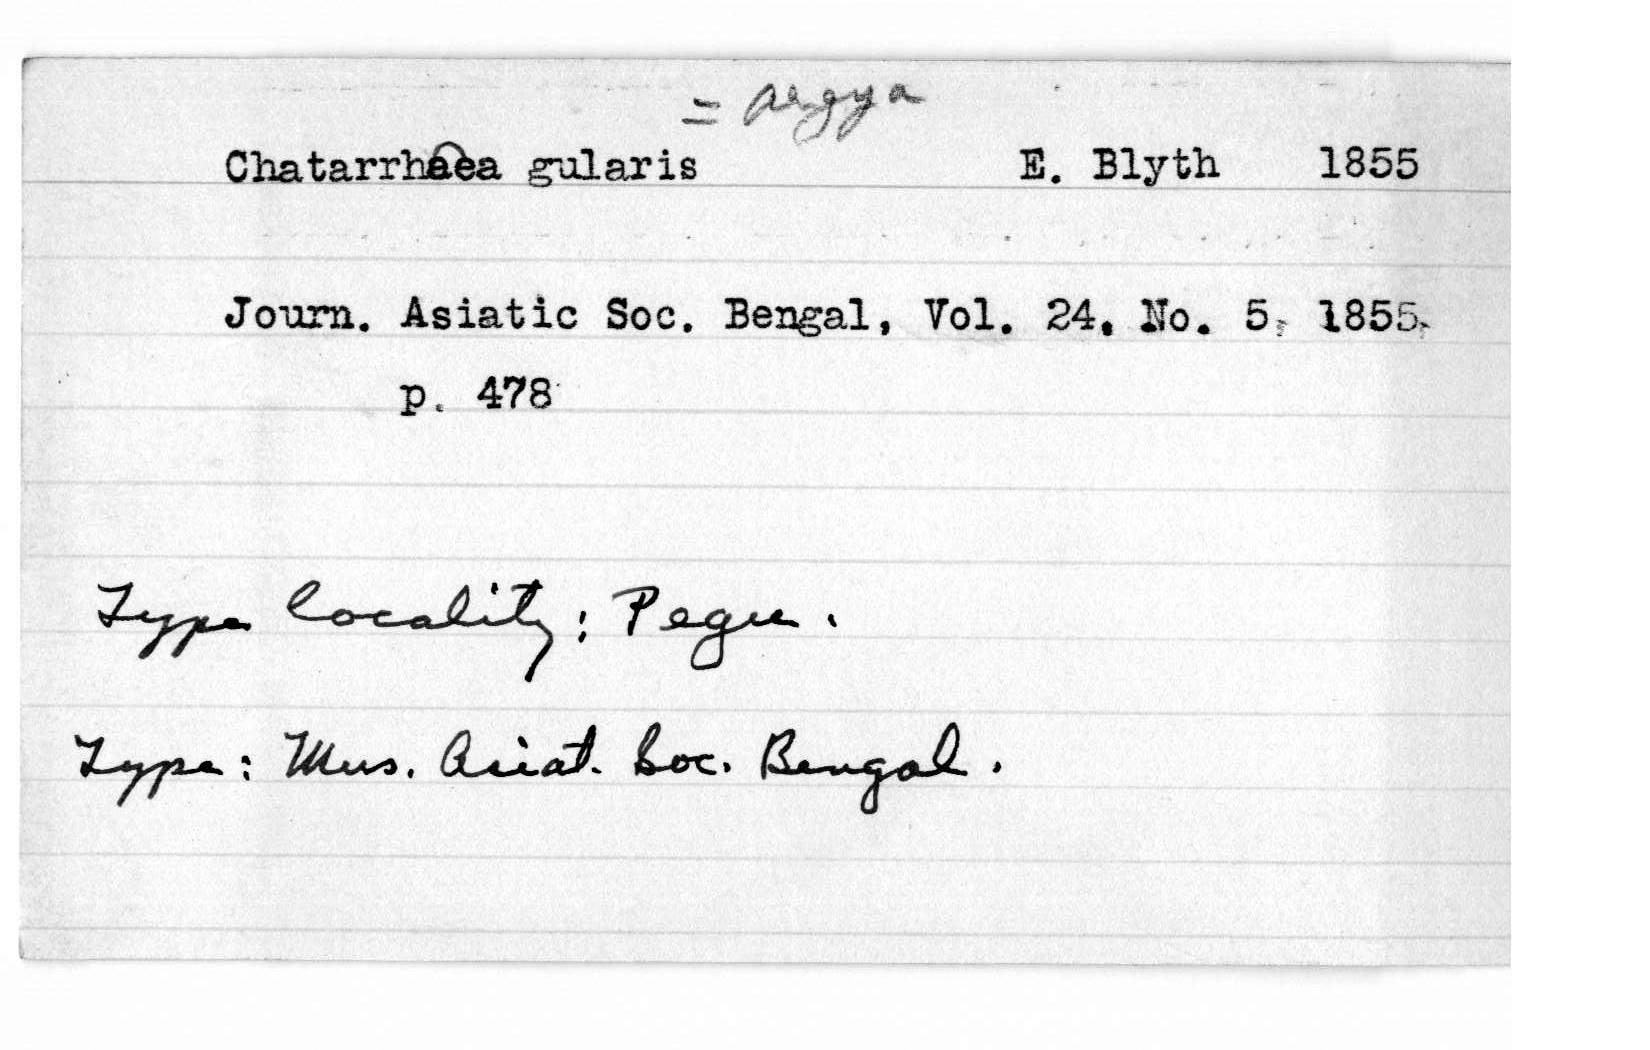 = Argya
Chatarrhaea gularis E. Blyth 1855
Journ. Asiatic Soc. Bengal, Vol. 24, No. 5, 1855,
p. 478
Type locality: Pegu.
Type: Mus. Asiat. Soc. Bengal.